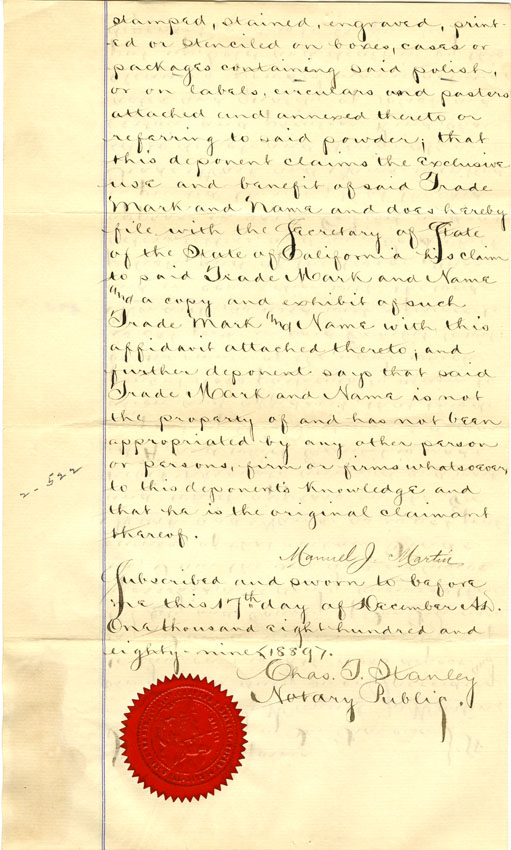 stamped, stained, engraved, print-
ed or stenciled on boxes, cases or
packages containing said polish,
or on labels, circulars and posters
attached and annexed thereto or
referring to said powder; that
this deponent claims the exclusive
use and benefit of said Trade
Mark and Name and does hereby
file with the Secretary of State
of the State of California his claim
to said Trade Mark and Name
and a copy and exhibit of such
Trade Mark and Name with this
affidavit attached thereto; and
further deponent says that said
Trade Mark and Name is not
the property of and has not been
appropriated by any other person
or persons, firm or firms whatsoever,
to this deponent's knowledge and
that he is the original claimant
thereof.
2-522
Manuel J. Martin
Subscribed and sworn to before
me this 17th day of December A.D.
One thousand eight hundred and
eighty-nine
Chas. T. Stanley
Notary Public.